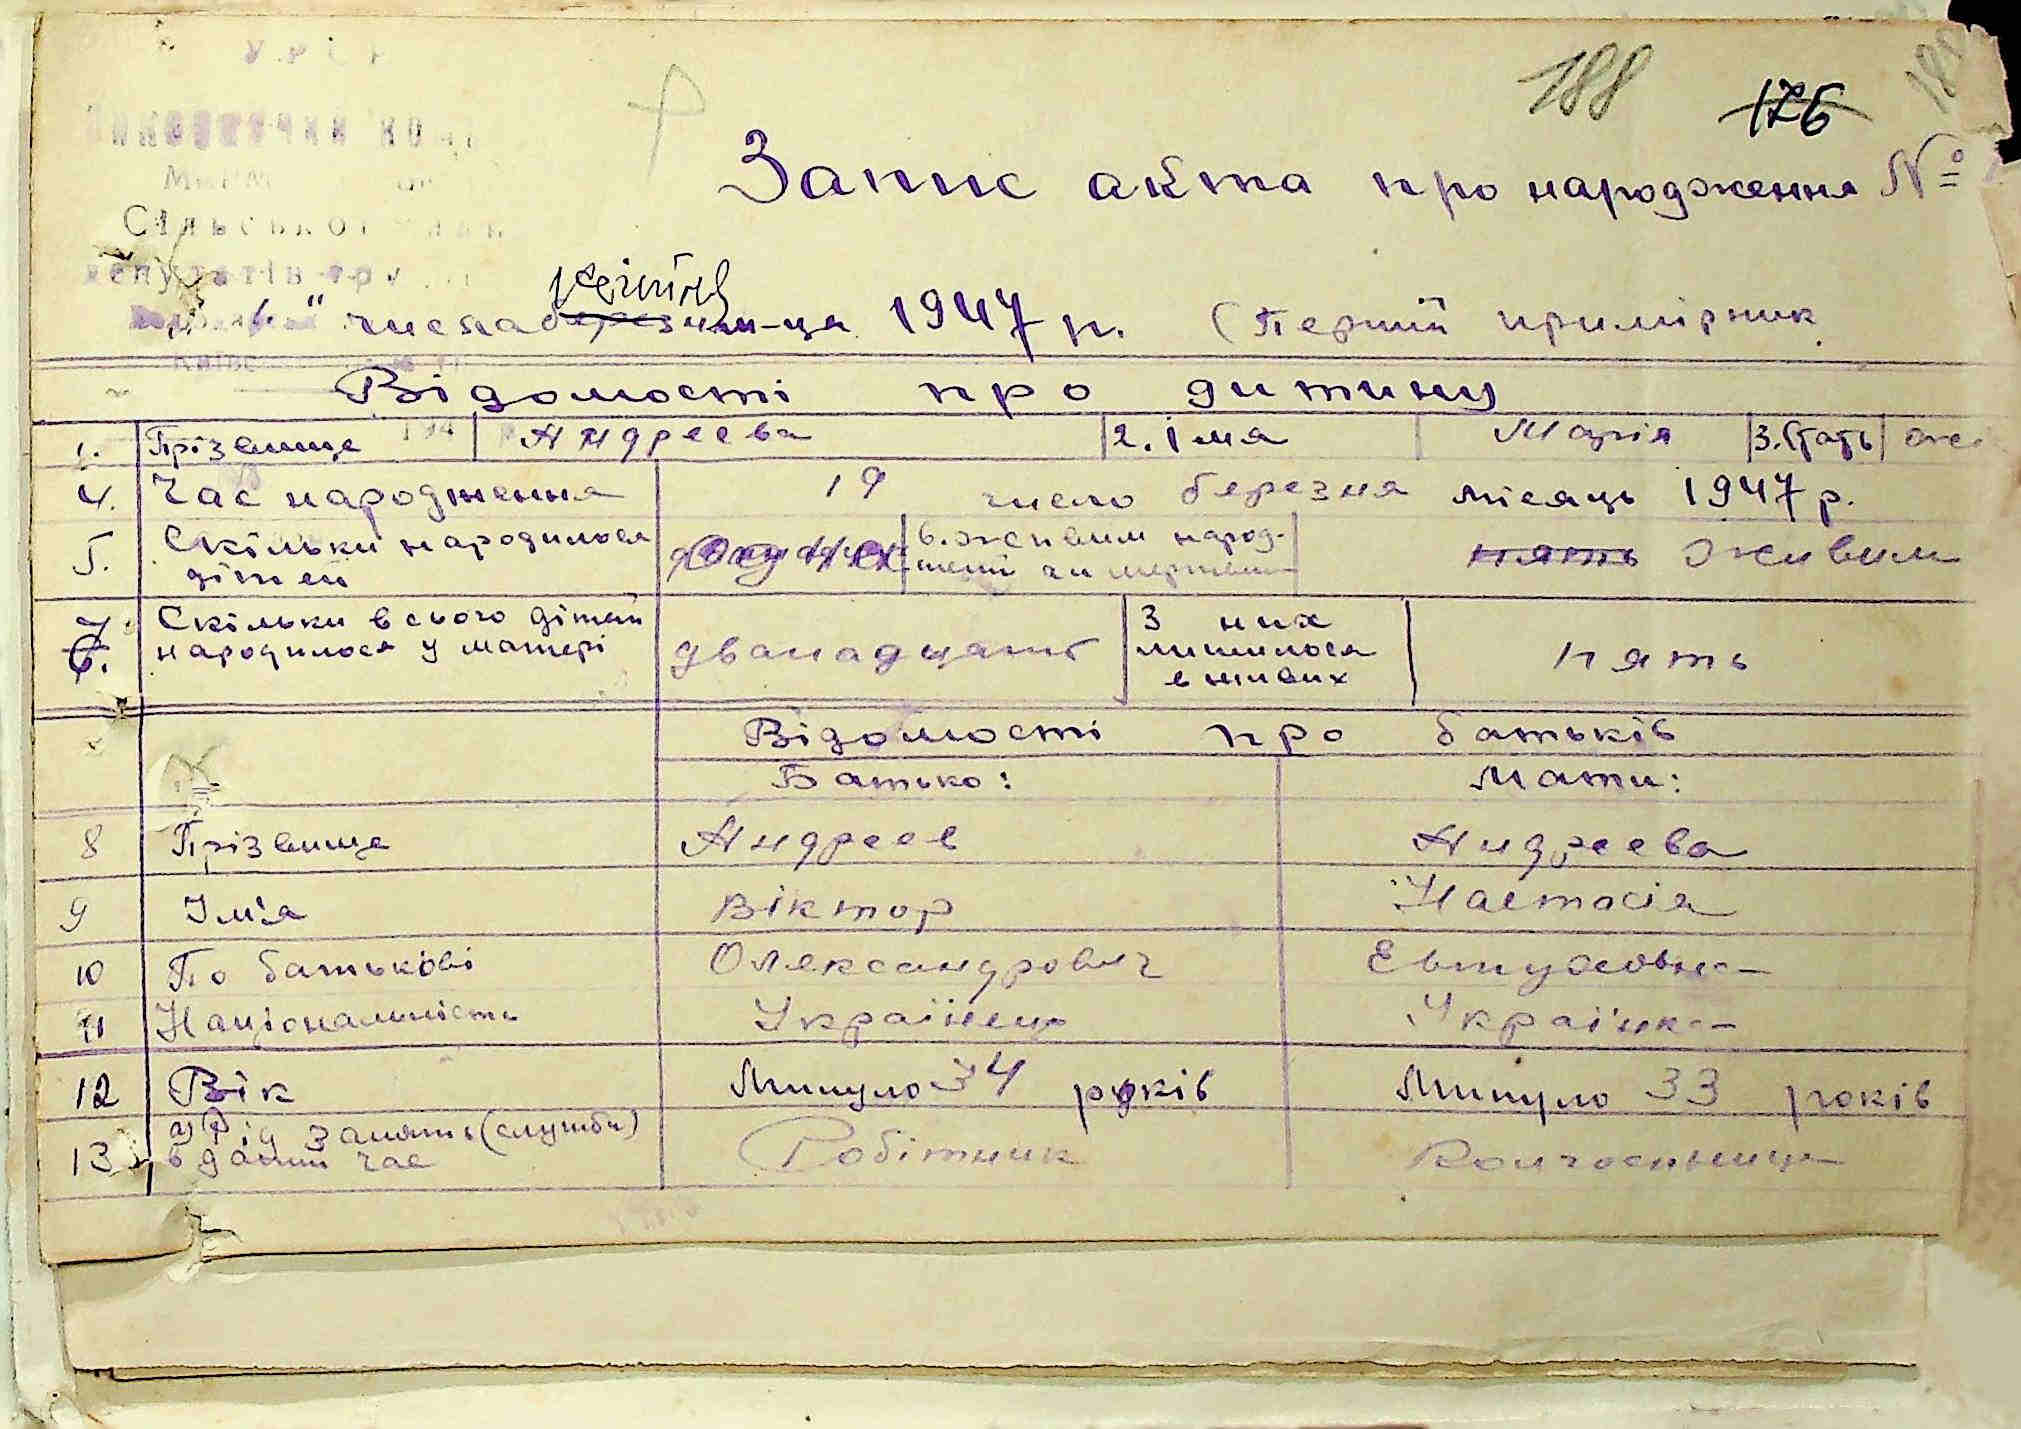 188 176
Запис акта про народження №
"6" числа березня квітня м-ця 1947 р. (Перший примірник
Відомості про дитину
1. Прізвище Андреева 2. Імя Марія 3. Стать
4. Час народження 19 число березня місяць 1947 р.
5. Скільки народилося дітей 6. Живим народ- чи мертвим пять живим
7. 6. Скільки всього дітей народилося у матері дванадцять З них лишилося в живих пять
Відомості про батьків
Батько: Мати:
8 Прізвище Андреев Андреева
9 Імя Віктор Настасія
10 По батькові Олександрович Евтуховна
11 Національність Українець Українка
12 Вік Минуло 34 років Минуло 33 років
13 а) Рід занять (служби) в даний час Робітник Колгоспниця